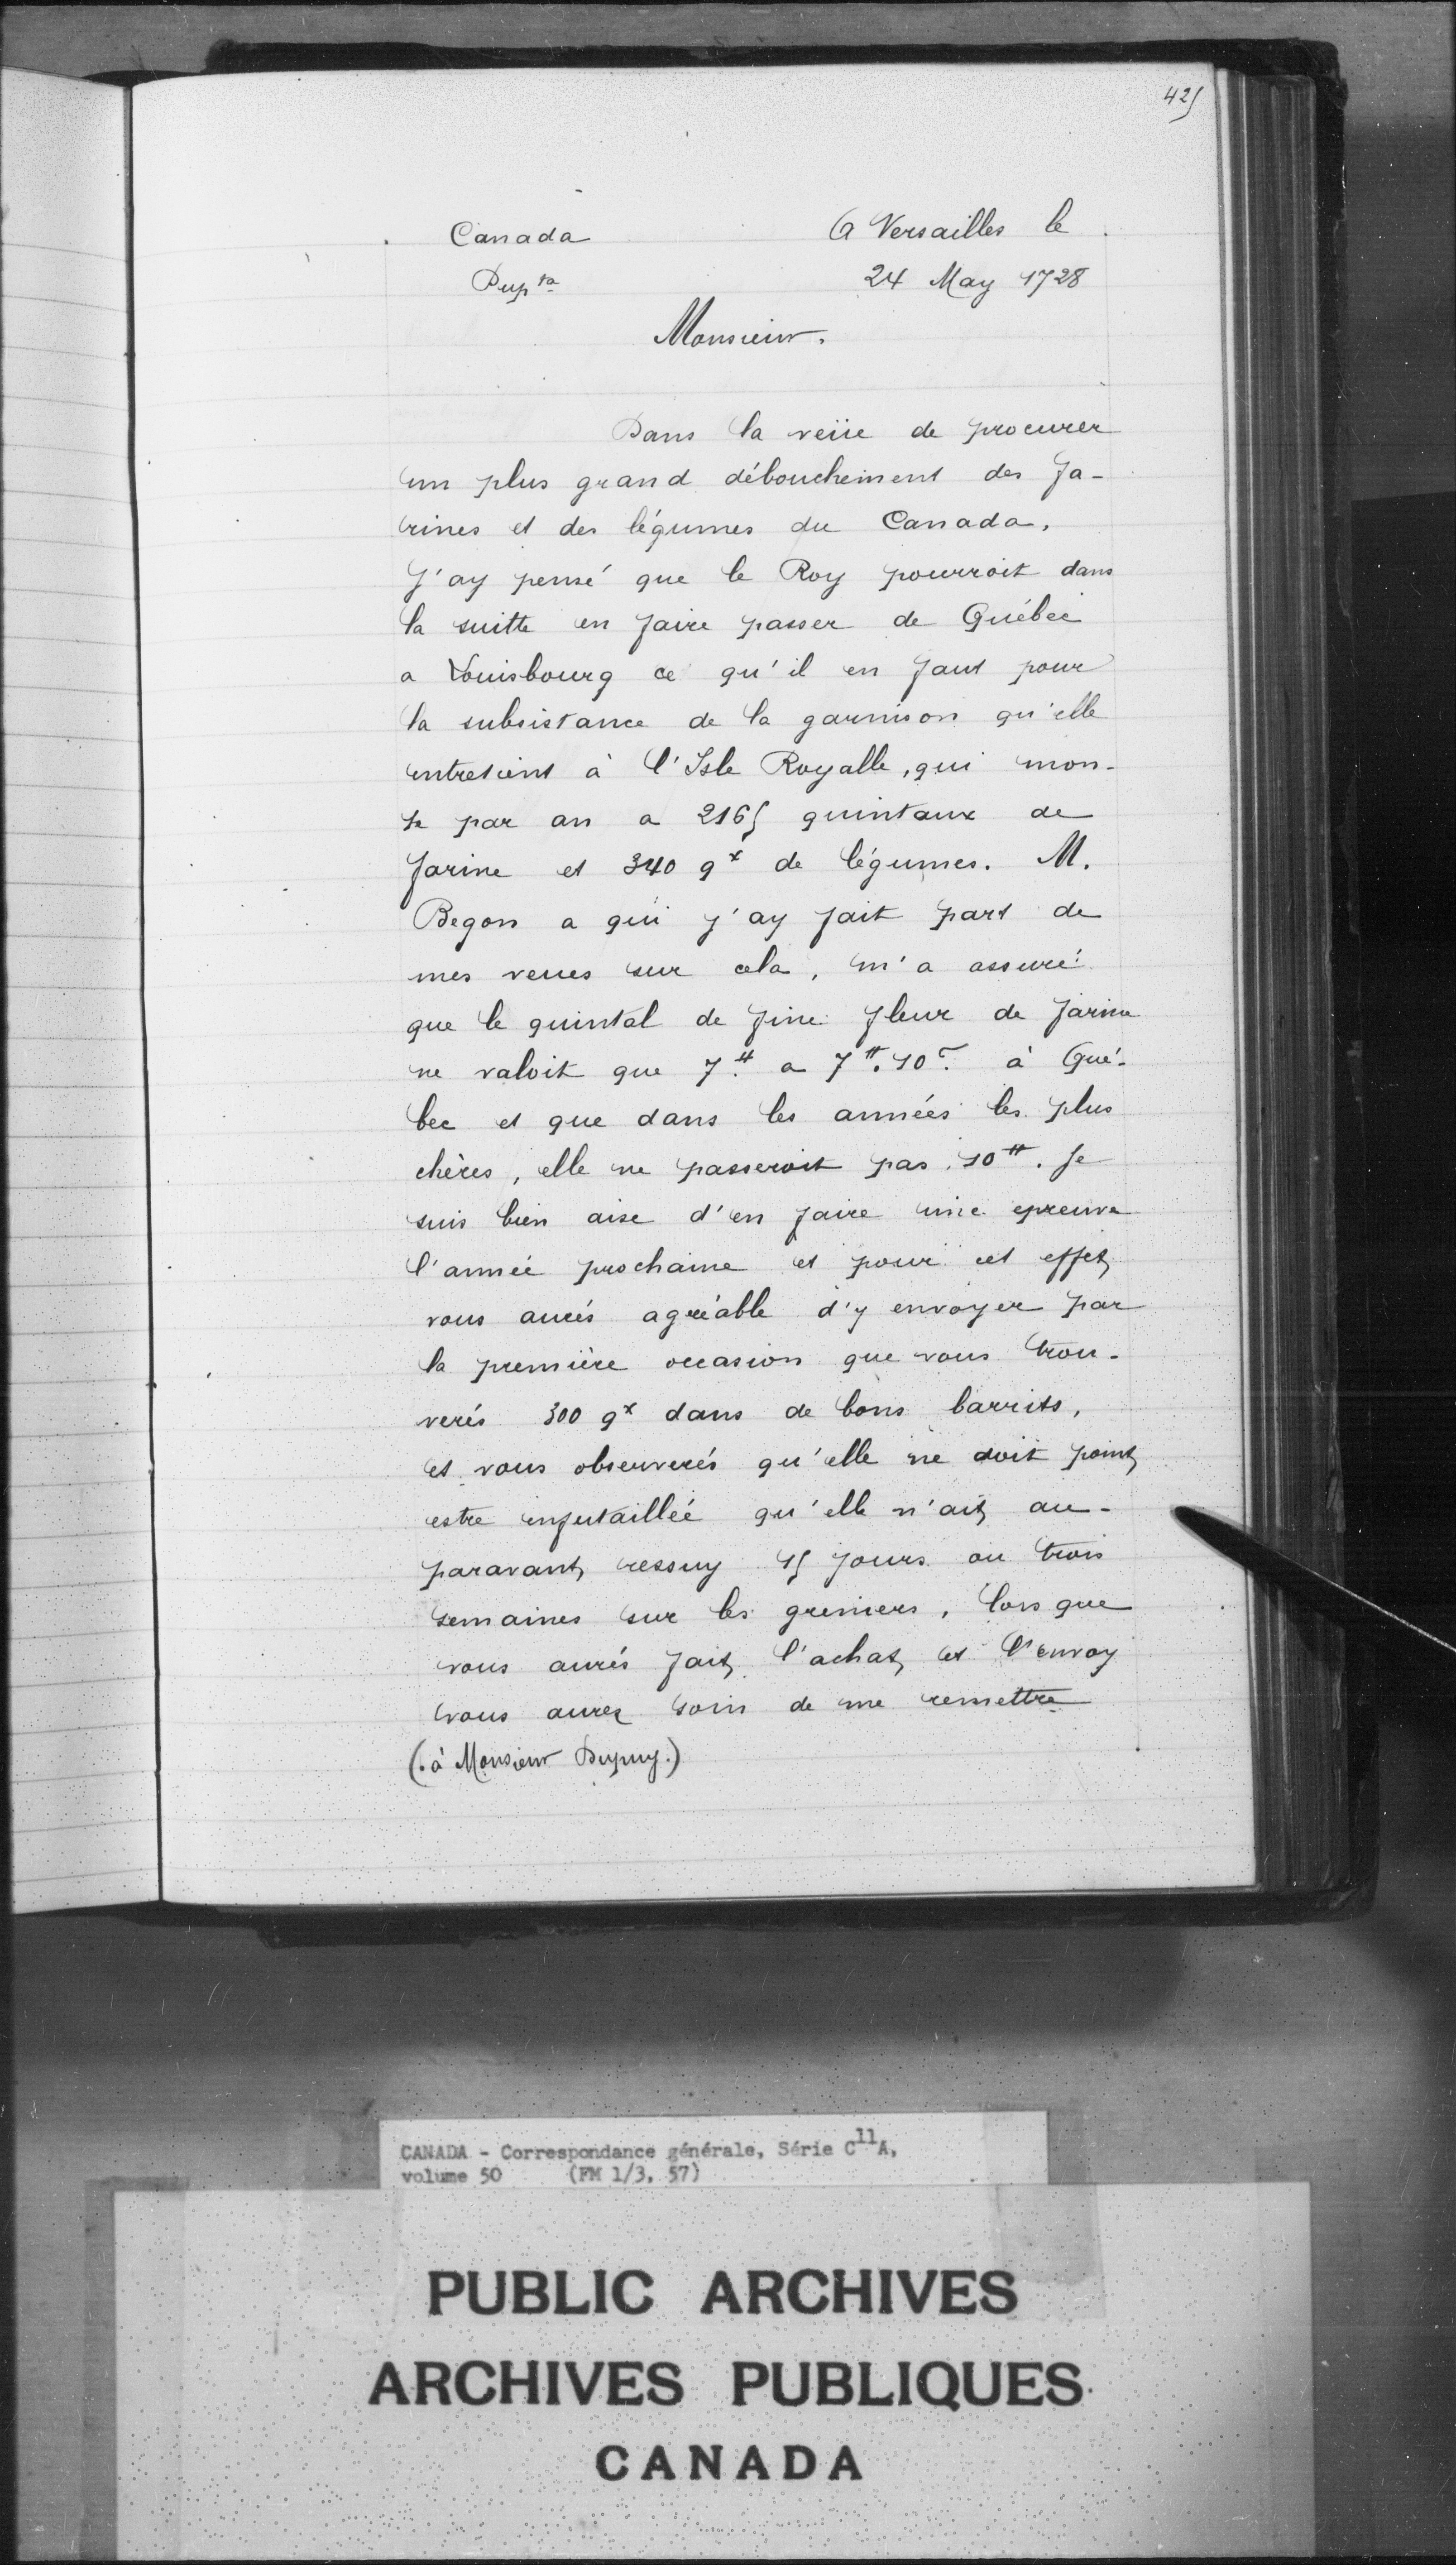 425
Canada
A Versailles le
Dup ta
24 May 1728
Monsieur.
Dans la veüe de procurer
un plus grand débouchement des fa-
rines et des légumes du Canada,
J'ay pensé que le Roy pourroit dans
la suitte en faire passer de Québec
a Louisbourg ce qu'il en faut pour
la subsistance de la garnison qu'elle
entretient à l'Isle Royalle, qui mon-
te par an a 2165 quintaux de
farine et 340 qx de légumes. M.
Begon a qui j'ay fait part de
mes veues sur cela, m'a assuré
que le quintal de fine fleur de farine
ne valoit que 7.# a 7#.10s. à Qué-
bec et que dans les années les plus
chères, elle ne passeroit pas 10#. Je
suis bien aise d'en faire une epreuve
l'année prochaine et pour cet effet
vous aurés agréable d'y envoyer par
la première occasion que vous trou-
verés 300 qx dans de bons barrits,
et vous observerés qu'elle ne doit point
estre enfutaillée qu'elle n'ait au-
paravant ressuy 15 jours ou trois
semaines sur les greniers, lors que
vous aurés fait l'achat et l'envoy
vous aurez soin de me remettre
(.à Monsieur Dupuy.)
CANADA - Correspondance générale, Série C11A,
volume 50 (FM 1/3, 57)
PUBLIC ARCHIVES
ARCHIVES PUBLIQUES
CANADA